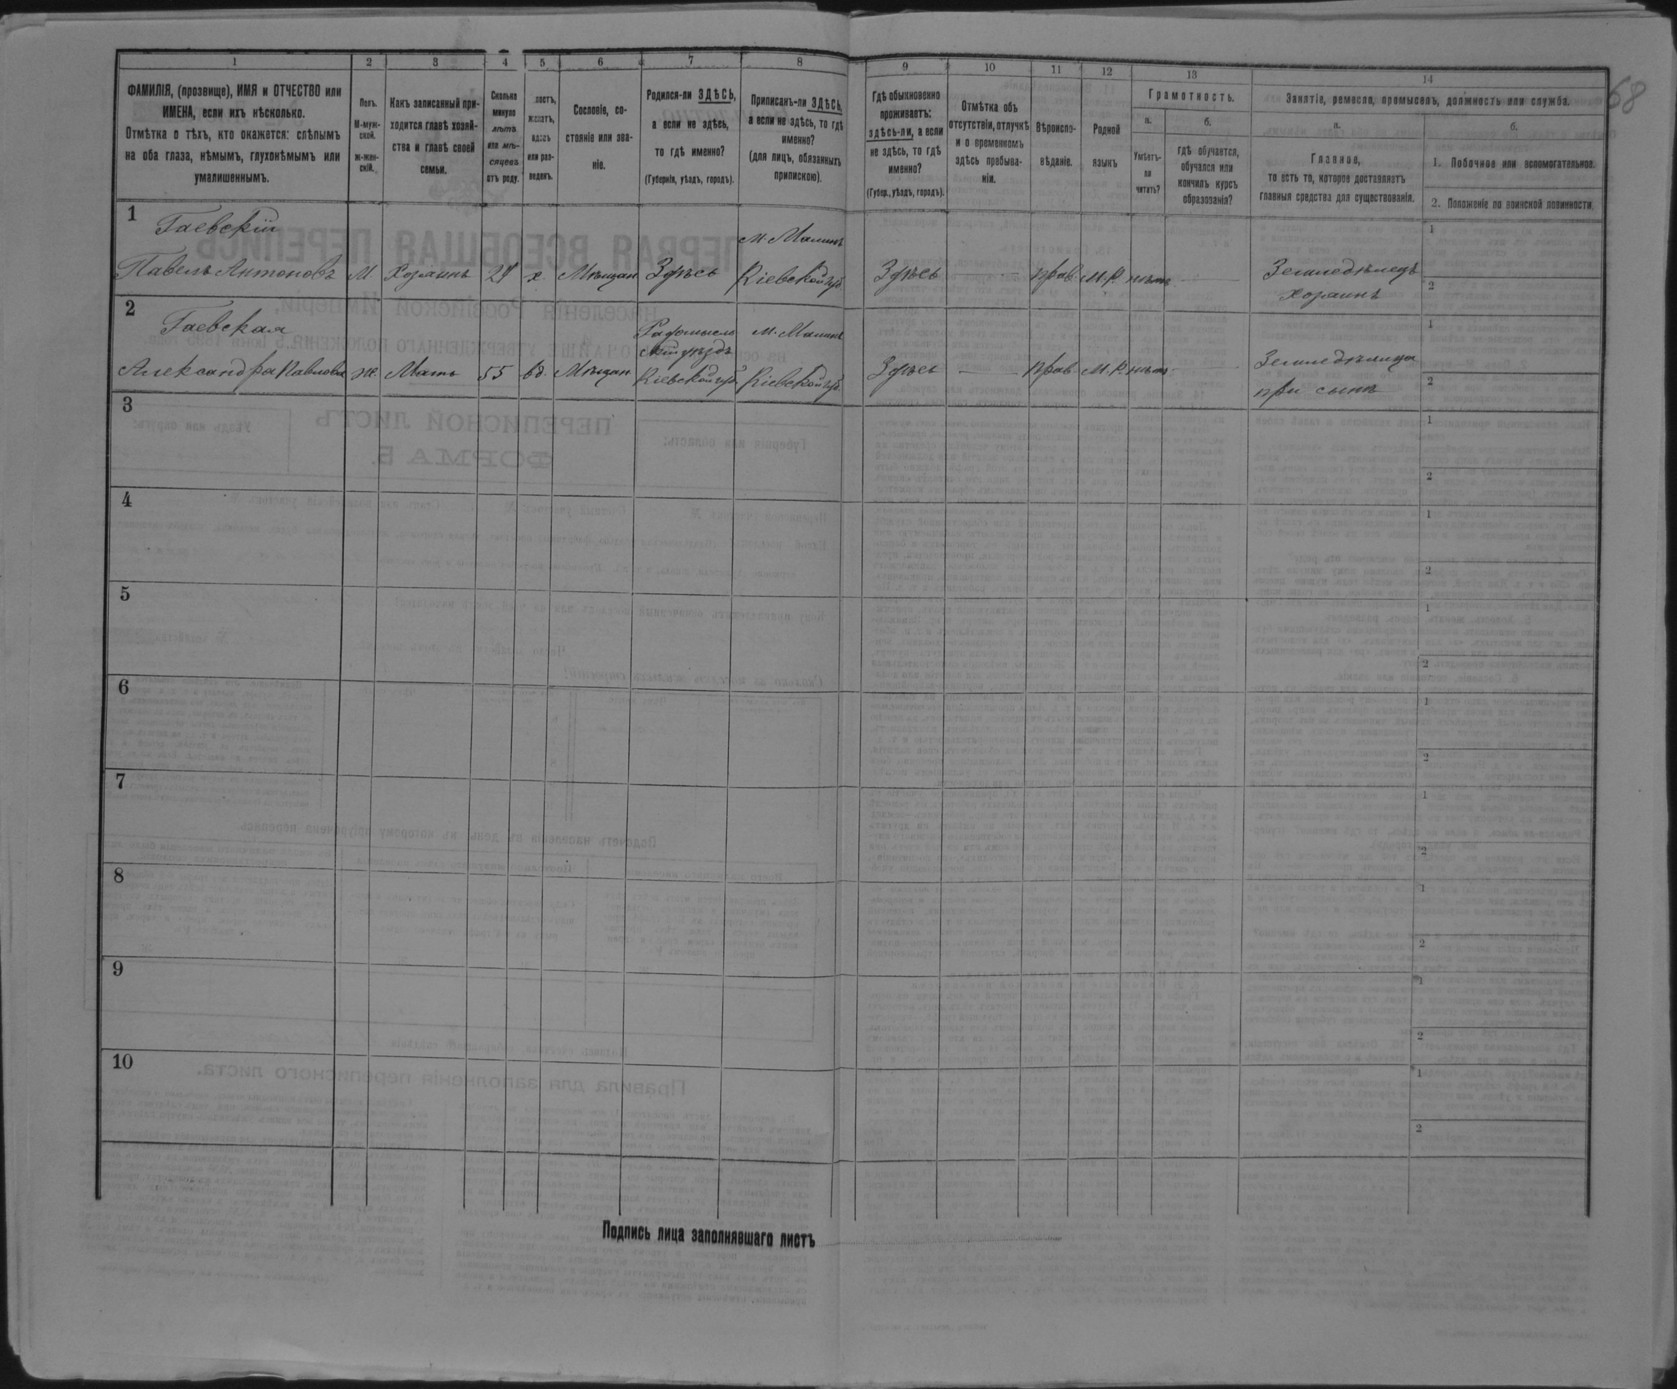 68
1 2 3 4 5 6 7 8 9 10 11 12 13 14
ФАМИЛІЯ, (прозвище), ИМЯ и ОТЧЕСТВО или
ИМЕНА, если ихъ нѣсколько.
Отмѣтка о тѣхъ, кто окажется: слѣпымъ
на оба глаза, нѣмымъ, глухонѣмымъ или
умалишеннымъ.
Полъ.
М-муж-
ской.
ж-жен-
скій.
Какъ записанный при-
ходится главѣ хозяй-
ства и главѣ своей
семьи.
Сколько
минуло
лѣтъ
или мѣ-
сяцевъ
отъ роду.
холостъ,
женатъ,
вдовъ
или раз-
веденъ.
Сословіе, со-
стояніе или зва-
ніе.
Родился-ли ЗДѢСЬ,
а если не здѣсь,
то гдѣ именно?
(Губернія, уѣздъ, городъ).
Приписанъ-ли ЗДѢСЬ,
а если не здѣсь, то гдѣ
именно?
(для лицъ, обязанныхъ
припискою).
Гдѣ обыкновенно
проживаетъ:
здѣсь-ли, а если
не здѣсь, то гдѣ
именно?
(Губер., уѣздъ, городъ).
Отмѣтка объ
отсутствіи, отлучкѣ
и о временномъ
здѣсь пребыва-
ніи.
Вѣроиспо-
вѣданіе.
Родной
языкъ
Грамотность.
а.
Умѣетъ-
ли
читать?
б.
гдѣ обучается,
обучался или
кончилъ курсъ
образованія?
Занятіе, ремесло, промыселъ, должность или служба.
а.
Главное,
то есть то, которое доставляетъ
главныя средства для существованія.
б.
1. Побочное или вспомогательное.
2. Положеніе по воинской повинности.
1 Гаевскій м. Малинъ 1
Павелъ Антоновъ М Хозяинъ 21 х Мѣщан Здѣсь Кіевской губ Здѣсь — прав М.Р. нѣтъ — Земледѣлецъ
хозяинъ 2
2 Гаевская Радомысл м. Малинъ 1
скій уѣздъ
Александра Павлова ж Мать 55 вд. Мѣщан Кіевской губ Кіевской губ Здѣсь — прав М.Р. нѣтъ — Земледѣлица
при сынѣ 2
3 1
2
4 1
2
5 1
2
6 1
2
7 1
2
8 1
2
9 1
2
10 1
2
Подпись лица заполнявшаго листъ